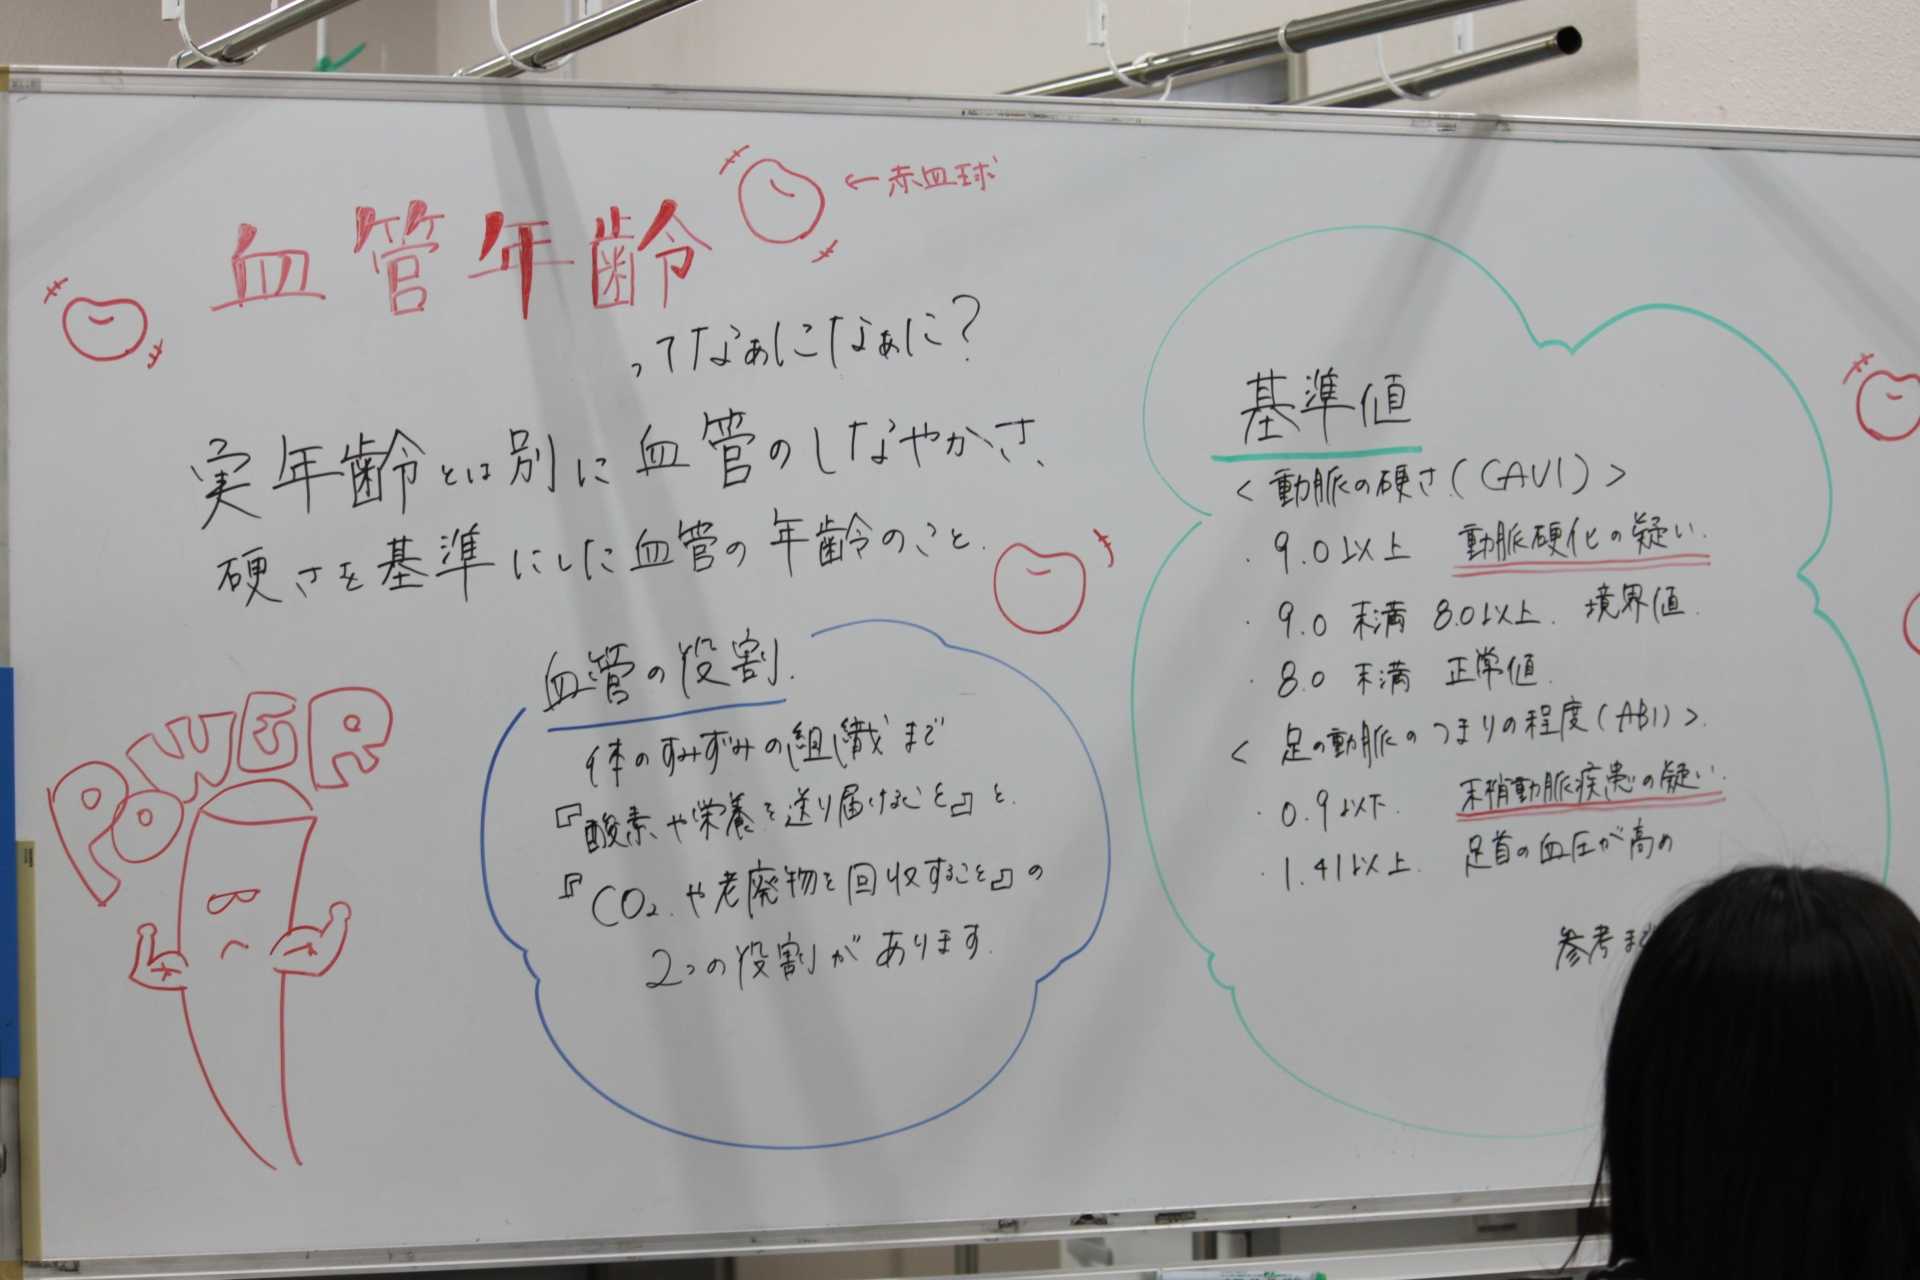 血管年齢
←赤血球
ってなぁになぁに?
実年齢とは別に血管のしなやかさ、
硬さを基準にした血管の年齢のこと.
POWER
血管の役割.
体のすみずみの組織まで
『酸素や栄養を送り届けること』と、
『CO2.や老廃物を回収すること』の
2つの役割があります.
基準値
<動脈の硬さ(CAVI)>
・9.0以上 動脈硬化の疑い.
・9.0未満 8.0以上. 境界値.
・8.0未満 正常値.
<足の動脈のつまりの程度(ABI)>.
・0.9以下. 末梢動脈疾患の疑い.
・1.41以上. 足首の血圧が高め
参考ま